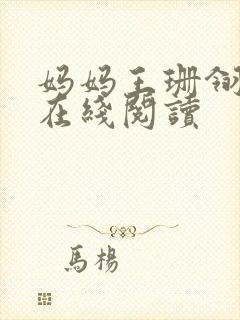 妈妈王珊
在綫閱讀
馬楊